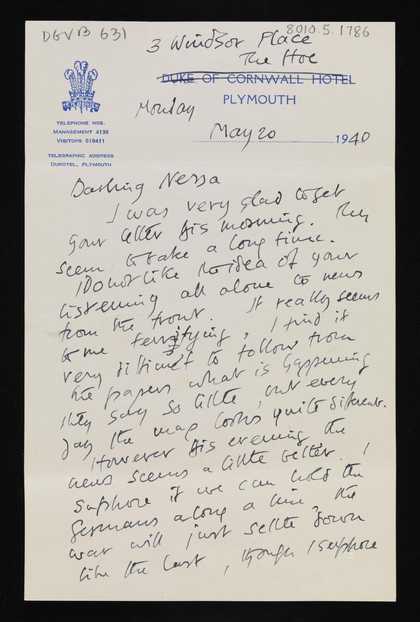 DGVB 631
8010.5.1786
3 Windsor Place
The Hoe
DUKE OF CORNWALL HOTEL
PLYMOUTH
TELEPHONE NOS.
MANAGEMENT 4136
VISITORS 619411
TELEGRAPHIC ADDRESS
DUKOTEL, PLYMOUTH
Monday
May 20 1940
Darling Nessa
I was very glad to get
your letter this morning. They
seem to take a long time.
I do not like the idea of your
listening all alone to news
from the front. It really seems
to me terrifying, I find it
very difficult to follow from
the papers what is happening
they say so little, but every
day the map looks quite different.
However this evening, the
news seems a little better. I
suppose if we can hold the
Germans along a line, the
war will just settle down
like the last, though I suppose